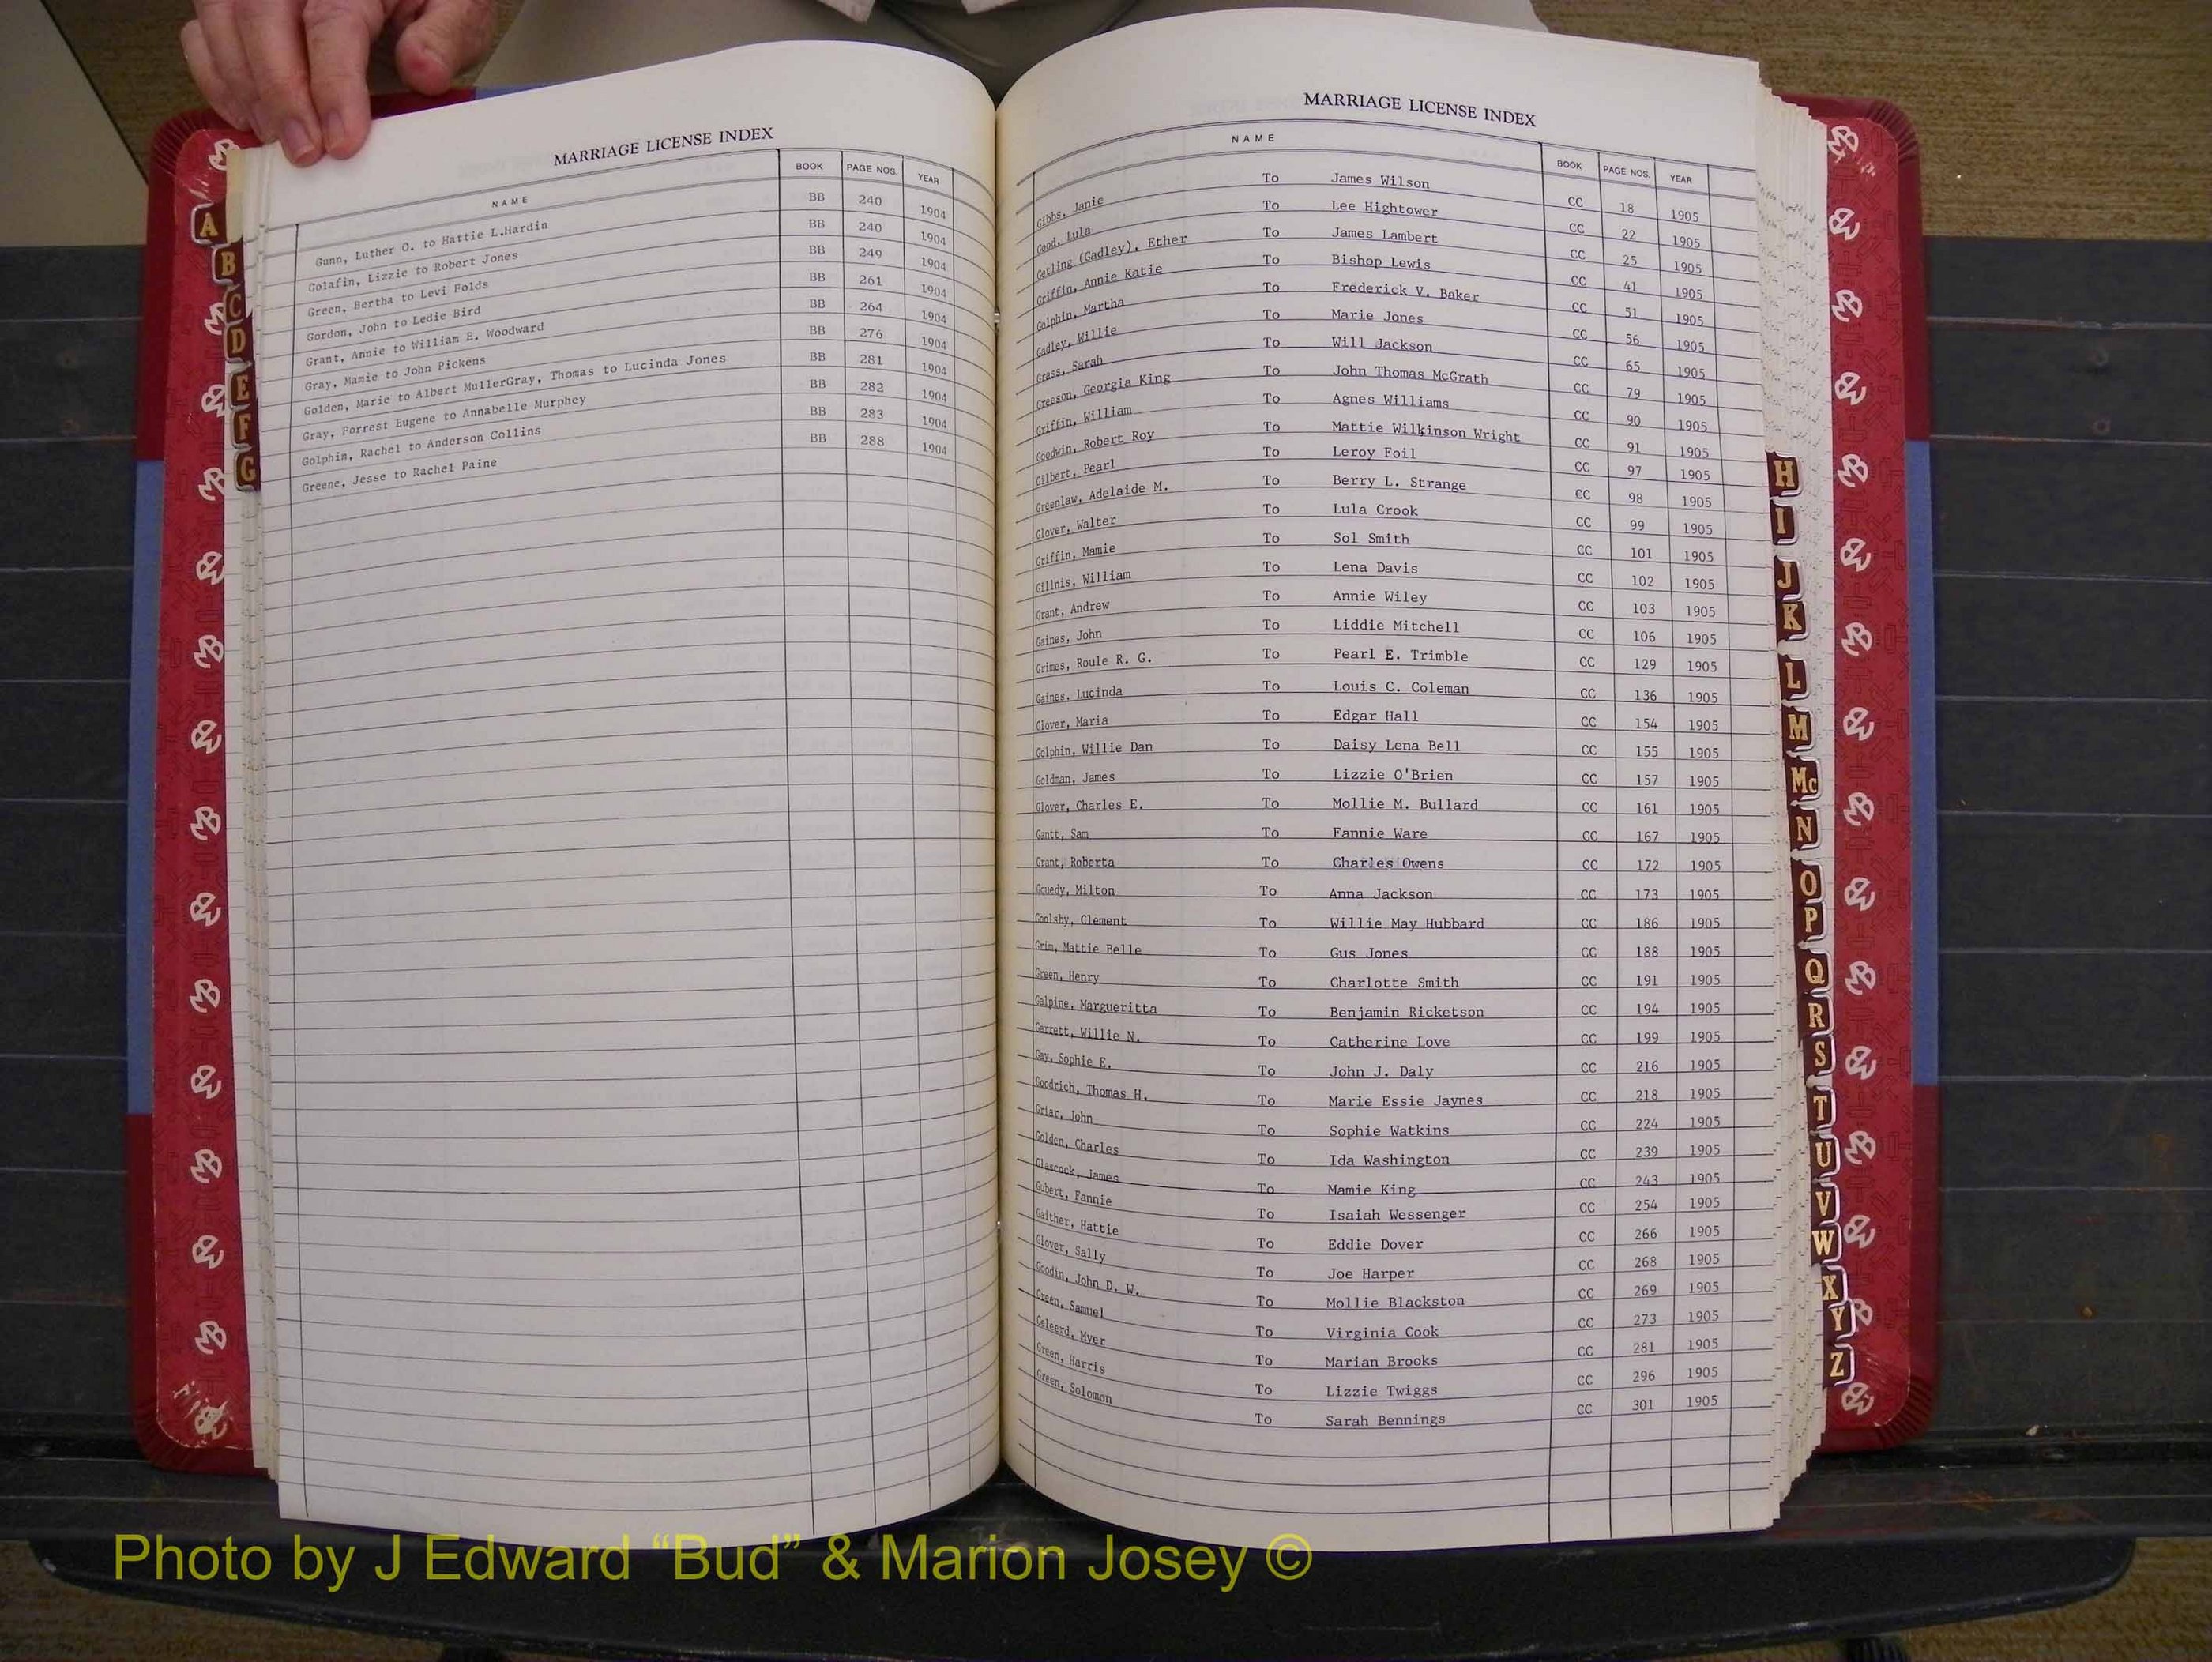 MARRIAGE LICENSE INDEX
NAME BOOK PAGE NOS. YEAR
Gunn, Luther O. to Hattie L.Hardin BB 240 1904
Golafin, Lizzie to Robert Jones BB 240 1904
Green, Bertha to Levi Folds BB 249 1904
Gordon, John to Ledie Bird BB 261 1904
Grant, Annie to William E. Woodward BB 264 1904
Gray, Mamie to John Pickens BB 276 1904
Golden, Marie to Albert MullerGray, Thomas to Lucinda Jones BB 281 1904
Gray, Forrest Eugene to Annabelle Murphey BB 282 1904
Golphin, Rachel to Anderson Collins BB 283 1904
Greene, Jesse to Rachel Paine BB 288 1904
A
B
C
D
E
F
G
MARRIAGE LICENSE INDEX
NAME BOOK PAGE NOS. YEAR
Gibbs, Janie To James Wilson CC 18 1905
Good, Lula To Lee Hightower CC 22 1905
Getling (Gadley), Ether To James Lambert CC 25 1905
Griffin, Annie Katie To Bishop Lewis CC 41 1905
Golphin, Martha To Frederick V. Baker CC 51 1905
Gadley, Willie To Marie Jones CC 56 1905
Grass, Sarah To Will Jackson CC 65 1905
Greeson, Georgia King To John Thomas McGrath CC 79 1905
Griffin, William To Agnes Williams CC 90 1905
Goodwin, Robert Roy To Mattie Wilkinson Wright CC 91 1905
Gilbert, Pearl To Leroy Foil CC 97 1905
Greenlaw, Adelaide M. To Berry L. Strange CC 98 1905
Glover, Walter To Lula Crook CC 99 1905
Griffin, Mamie To Sol Smith CC 101 1905
Gillnis, William To Lena Davis CC 102 1905
Grant, Andrew To Annie Wiley CC 103 1905
Gaines, John To Liddie Mitchell CC 106 1905
Grimes, Roule R. G. To Pearl E. Trimble CC 129 1905
Gaines, Lucinda To Louis C. Coleman CC 136 1905
Glover, Maria To Edgar Hall CC 154 1905
Golphin, Willie Dan To Daisy Lena Bell CC 155 1905
Goldman, James To Lizzie O'Brien CC 157 1905
Glover, Charles E. To Mollie M. Bullard CC 161 1905
Gantt, Sam To Fannie Ware CC 167 1905
Grant, Roberta To Charles Owens CC 172 1905
Gouedy, Milton To Anna Jackson CC 173 1905
Goolsby, Clement To Willie May Hubbard CC 186 1905
Grim, Mattie Belle To Gus Jones CC 188 1905
Green, Henry To Charlotte Smith CC 191 1905
Galpine, Margueritta To Benjamin Ricketson CC 194 1905
Garrett, Willie N. To Catherine Love CC 199 1905
Gay, Sophie E. To John J. Daly CC 216 1905
Goodrich, Thomas H. To Marie Essie Jaynes CC 218 1905
Griar, John To Sophie Watkins CC 224 1905
Golden, Charles To Ida Washington CC 239 1905
Glascock, James To Mamie King CC 243 1905
Gubert, Fannie To Isaiah Wessenger CC 254 1905
Gaither, Hattie To Eddie Dover CC 266 1905
Glover, Sally To Joe Harper CC 268 1905
Goodin, John D. W. To Mollie Blackston CC 269 1905
Green, Samuel To Virginia Cook CC 273 1905
Geleerd, Myer To Marian Brooks CC 281 1905
Green, Harris To Lizzie Twiggs CC 296 1905
Green, Solomon To Sarah Bennings CC 301 1905
H
I
J
K
L
M
Mc
N
O
P
Q
R
S
T
U
V
W
X
Y
Z
Photo by J Edward “Bud” & Marion Josey ©